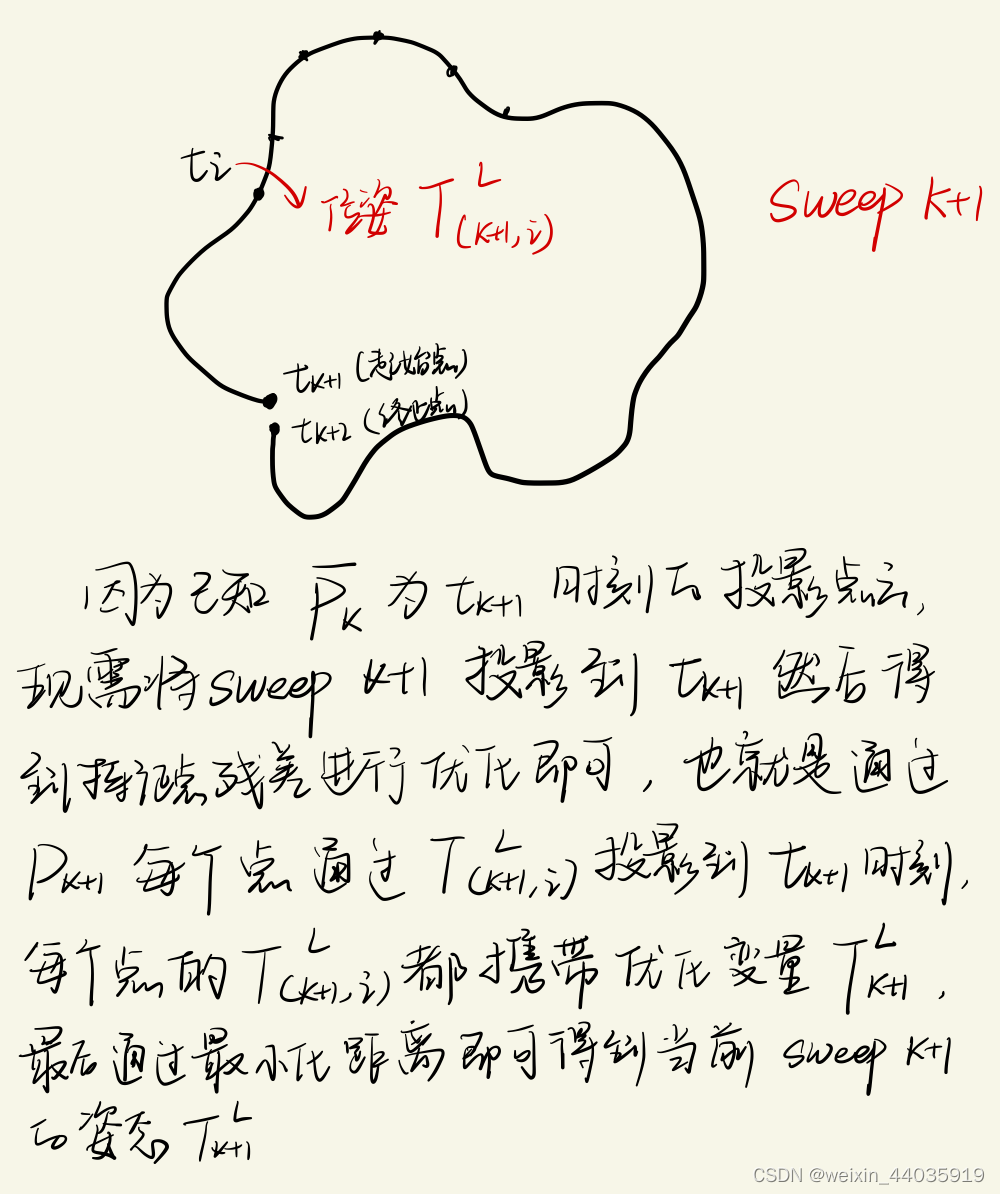 tᵢ
位姿 T^L_(k+1,i)
Sweep k+1
t_k+1 (起始点)
t_k+2 (终止点)
因为已知 P̅_k 为 t_k+1 时刻的投影点云,
现需将sweep k+1 投影到 t_k+1 然后得
到特征点残差进行优化即可, 也就是通过
P_k+1 每个点通过 T^L_(k+1,i) 投影到 t_k+1 时刻,
每个点的 T^L_(k+1,i) 都携带优化变量 T^L_k+1 ,
最后通过最小化距离即可得到当前 sweep k+1
的姿态 T^L_k+1
CSDN @weixin_44035919